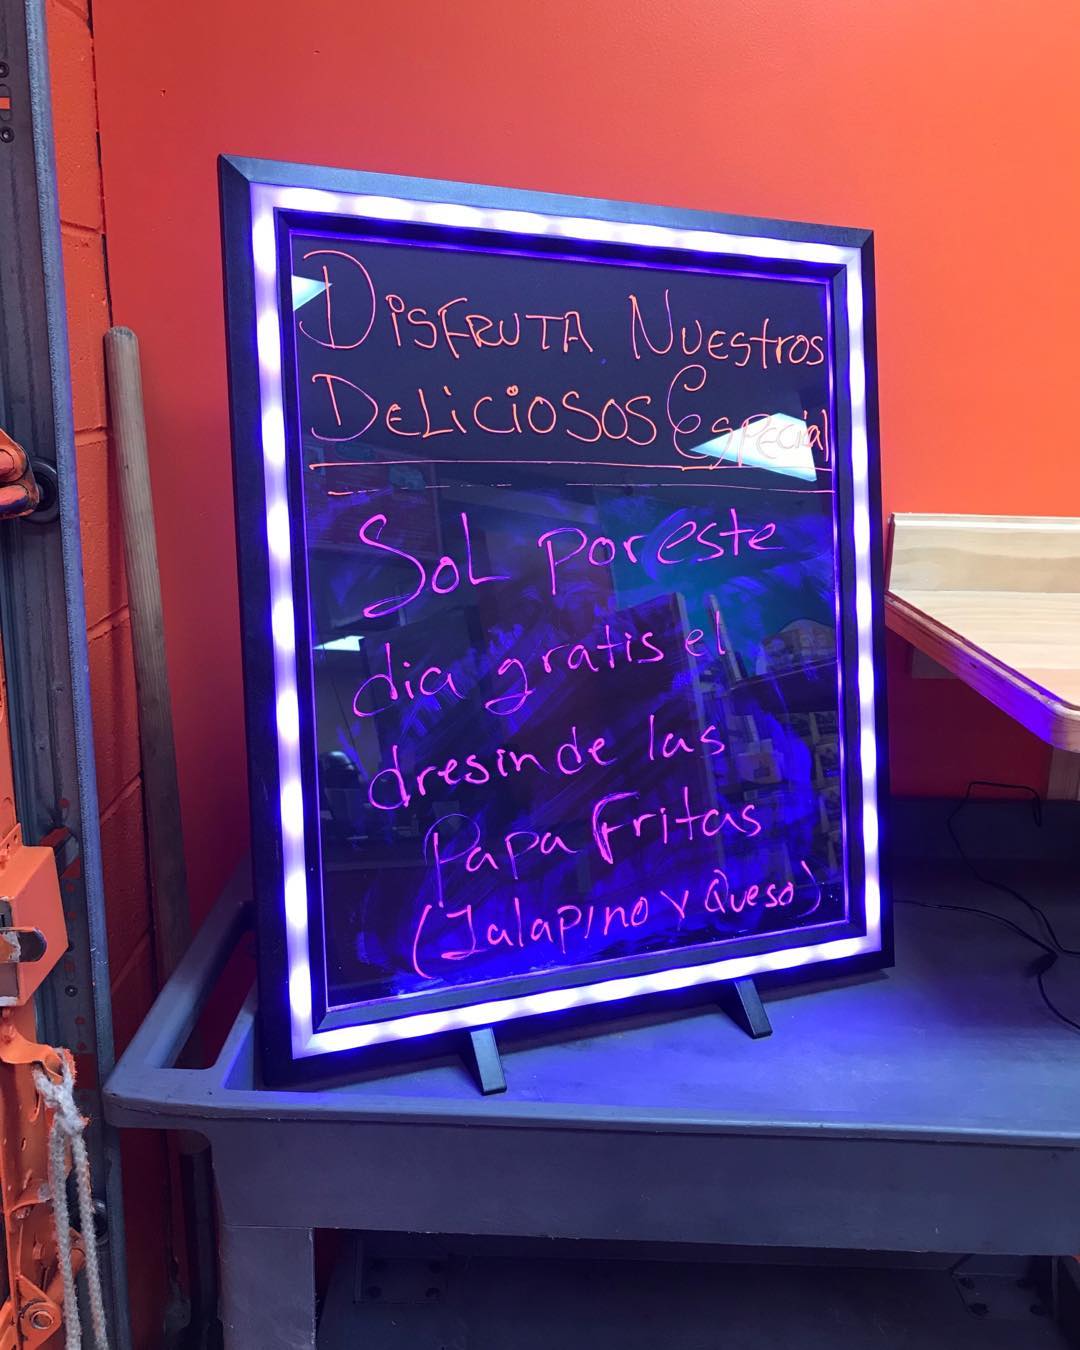 DisFRUTA NuEstros
DELiCiOSOS Especial
SoL por este
dia gratis el
dresin de las
Papa Fritas
(Jalapino y Queso)